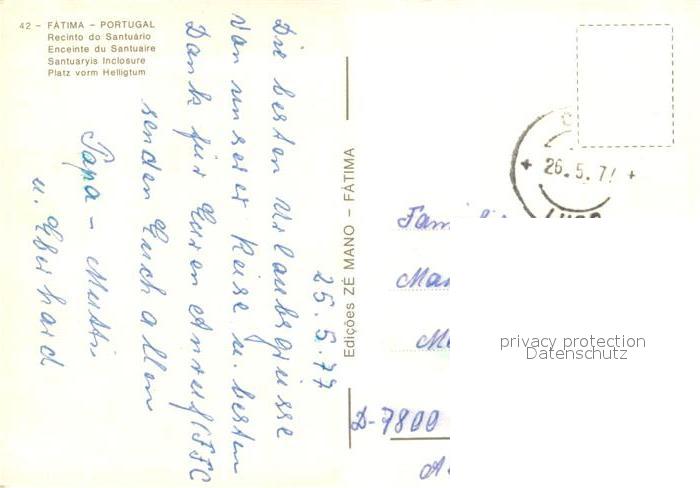 42 - FÁTIMA - PORTUGAL
Recinto do Santuário
Enceinte du Santuaire
Santuaryis Inclosure
Platz vorm Helligtum
25.5.77
Die besten Urlaubsgrüsse
von unserer Reise u. besten
Dank für Euren Anruf
senden Euch allen
Papa - Mutti
u. Eberhard
Edições ZÉ MANO - FÁTIMA
26.5.77
Famili
D-7800
privacy protection
Datenschutz